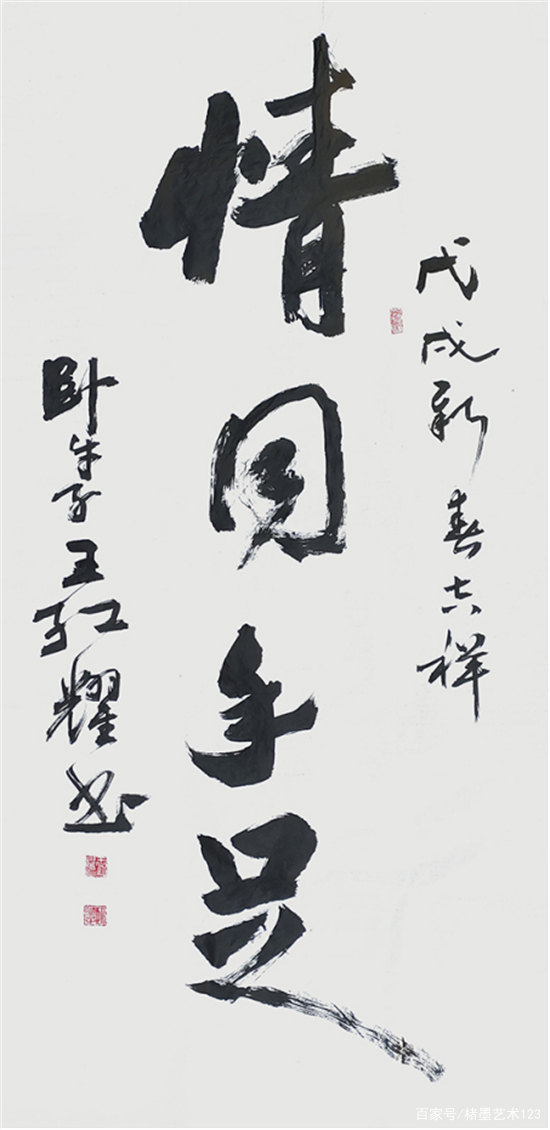 戊戌新春吉祥
情同手足
卧牛子王红耀书
百家号/楮墨艺术123